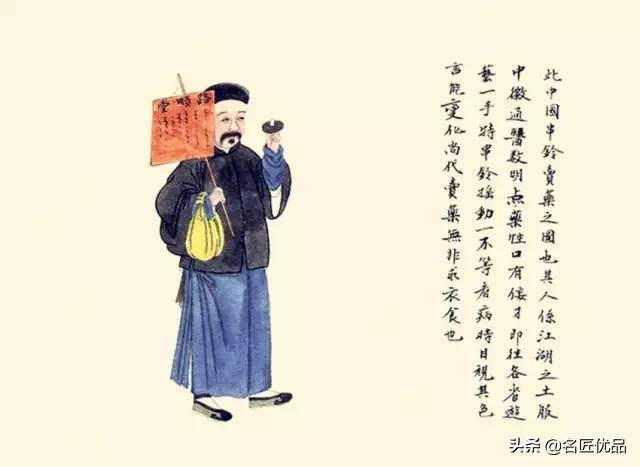 路順堂
此中國串鈴賣藥之圖也其人係江湖之土服
中微通醫数明点藥性口有侫才即往各省遊
藝一手持串鈴摇動一不等看病時目視其色
言能變化尚代賣藥無非求衣食也
头条 @名匠优品